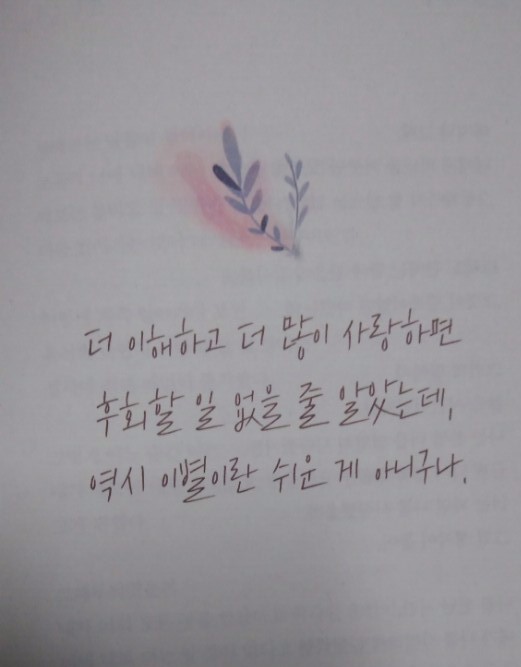 더 이해하고 더 많이 사랑하면
후회할 일 없을 줄 알았는데,
역시 이별이란 쉬운 게 아니구나.